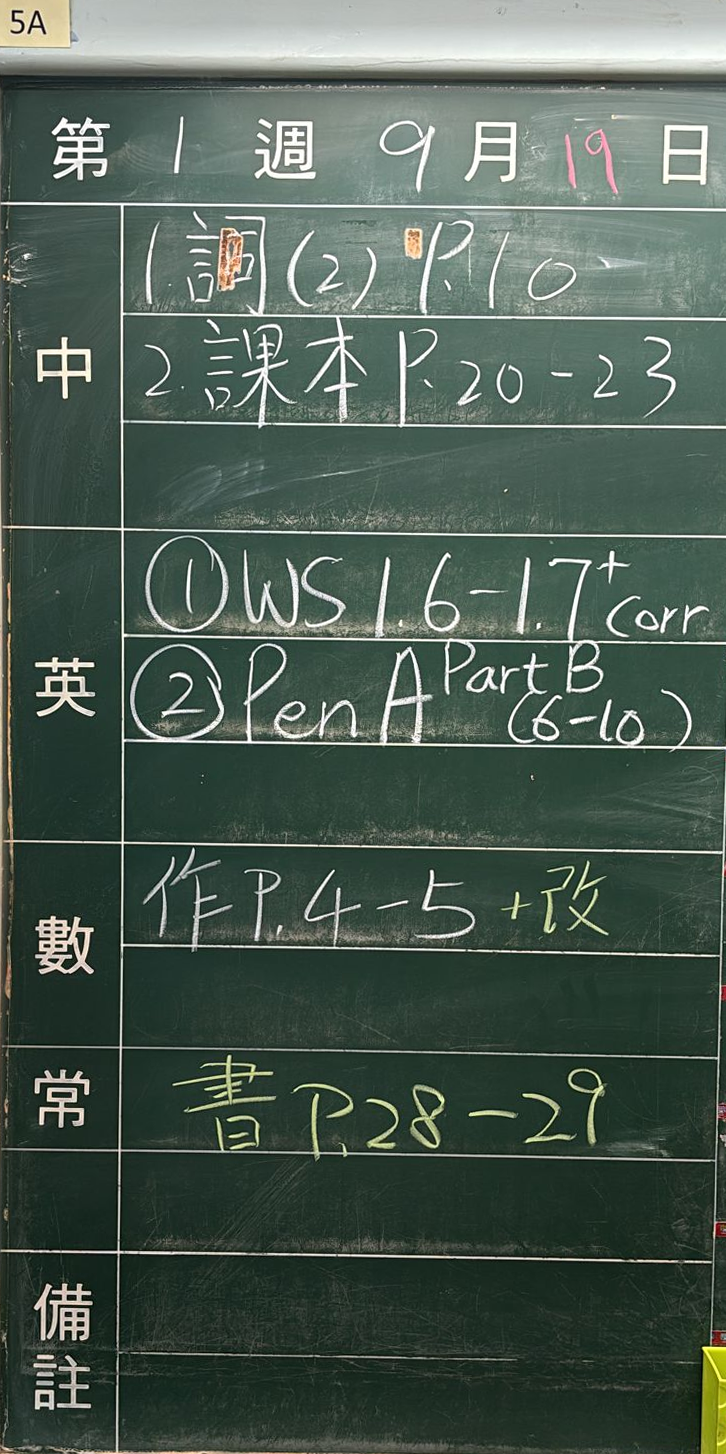 5A
第 1 週 9 月 19 日
中
1.詞(2) P.10
2.課本 P.20-23
英
①WS 1.6-1.7+corr
②Pen A Part B (6-10)
數
作 P.4-5 +改
常
書 P.28-29
備註